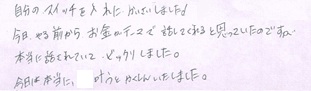 自分のスイッチを入れにがいさいしました!
今日、やる前からお金のテーマで話してくれると思っていたのですが、
本当に話されていて、ビックリしました。
今日は本当に、叶うとかくしんいたしました。